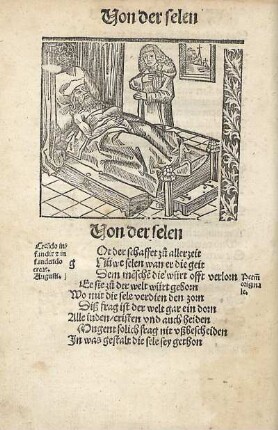 Von der selen
Von der selen
Creādo in
fundit̄ ⁊ in
fundendo
creat.
Augusti.
g
Ot der schaffet zů aller zeit
Nüwe selen wan er die geit
Dem mēschē die würt offt verlorn
Ee sie zů der welt würt geborn
Pctm̄
origina
le.
Wo mit die sele verdien den zorn
Diß frag ist der welt gar ein dorn
Alle iuden / cristen vnd auch heiden
Mügent solich frag nit vßbescheiden
In was gestalt die sele sey gethon